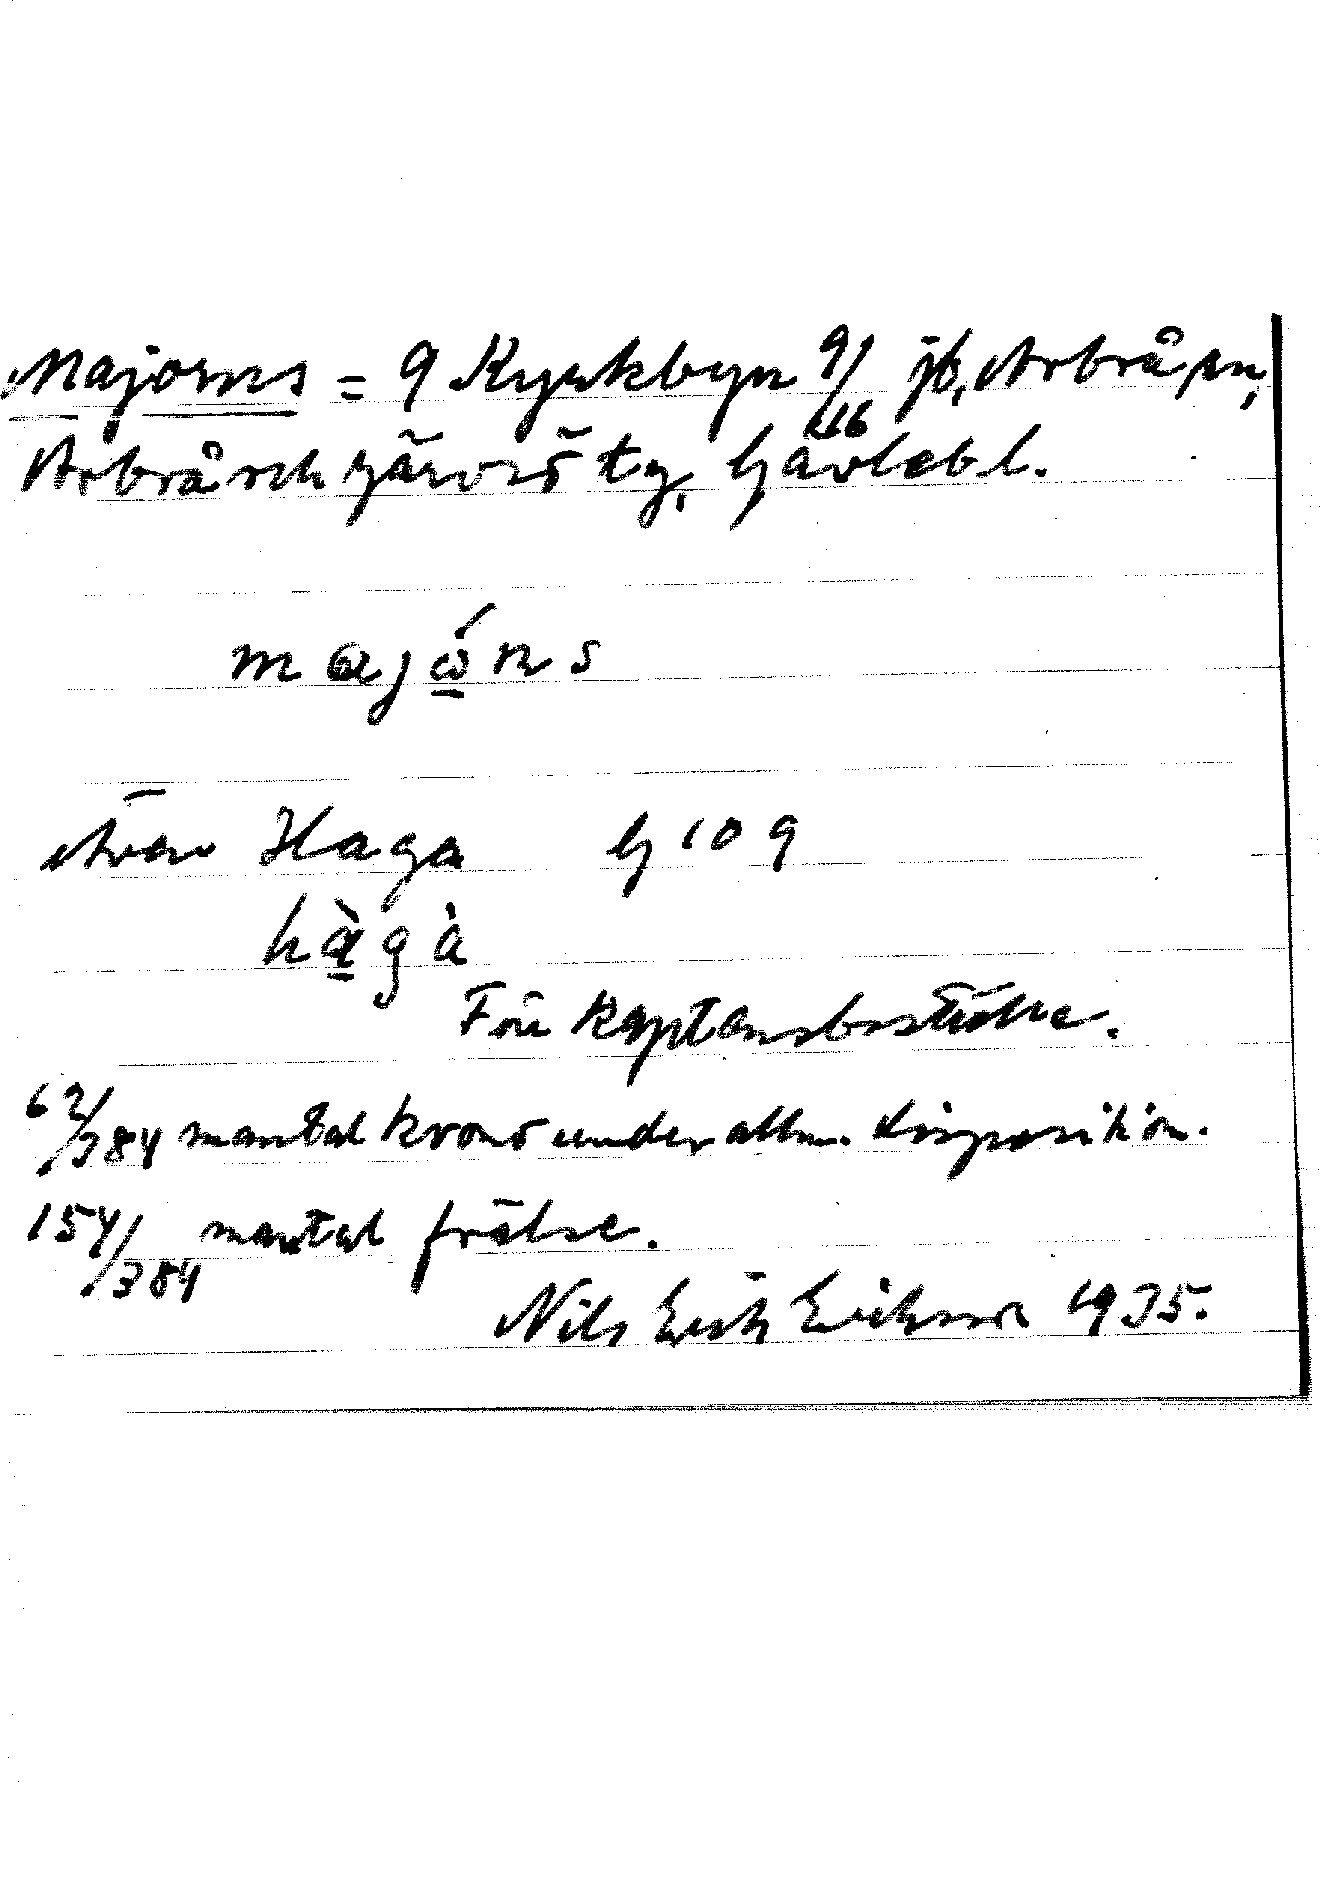 Majorns = 9 Kyrkbyn 9/16 jb, Arbrå sn,
Arbrå och Järvsö tg, Gävlebl.
majώns
Även Haga G 109
hàgà
Förr kaptensboställe.
62/384 mantal krono under allm. disposition.
154/384 mantal frälse.
Nils Erik Eriksson 1935.